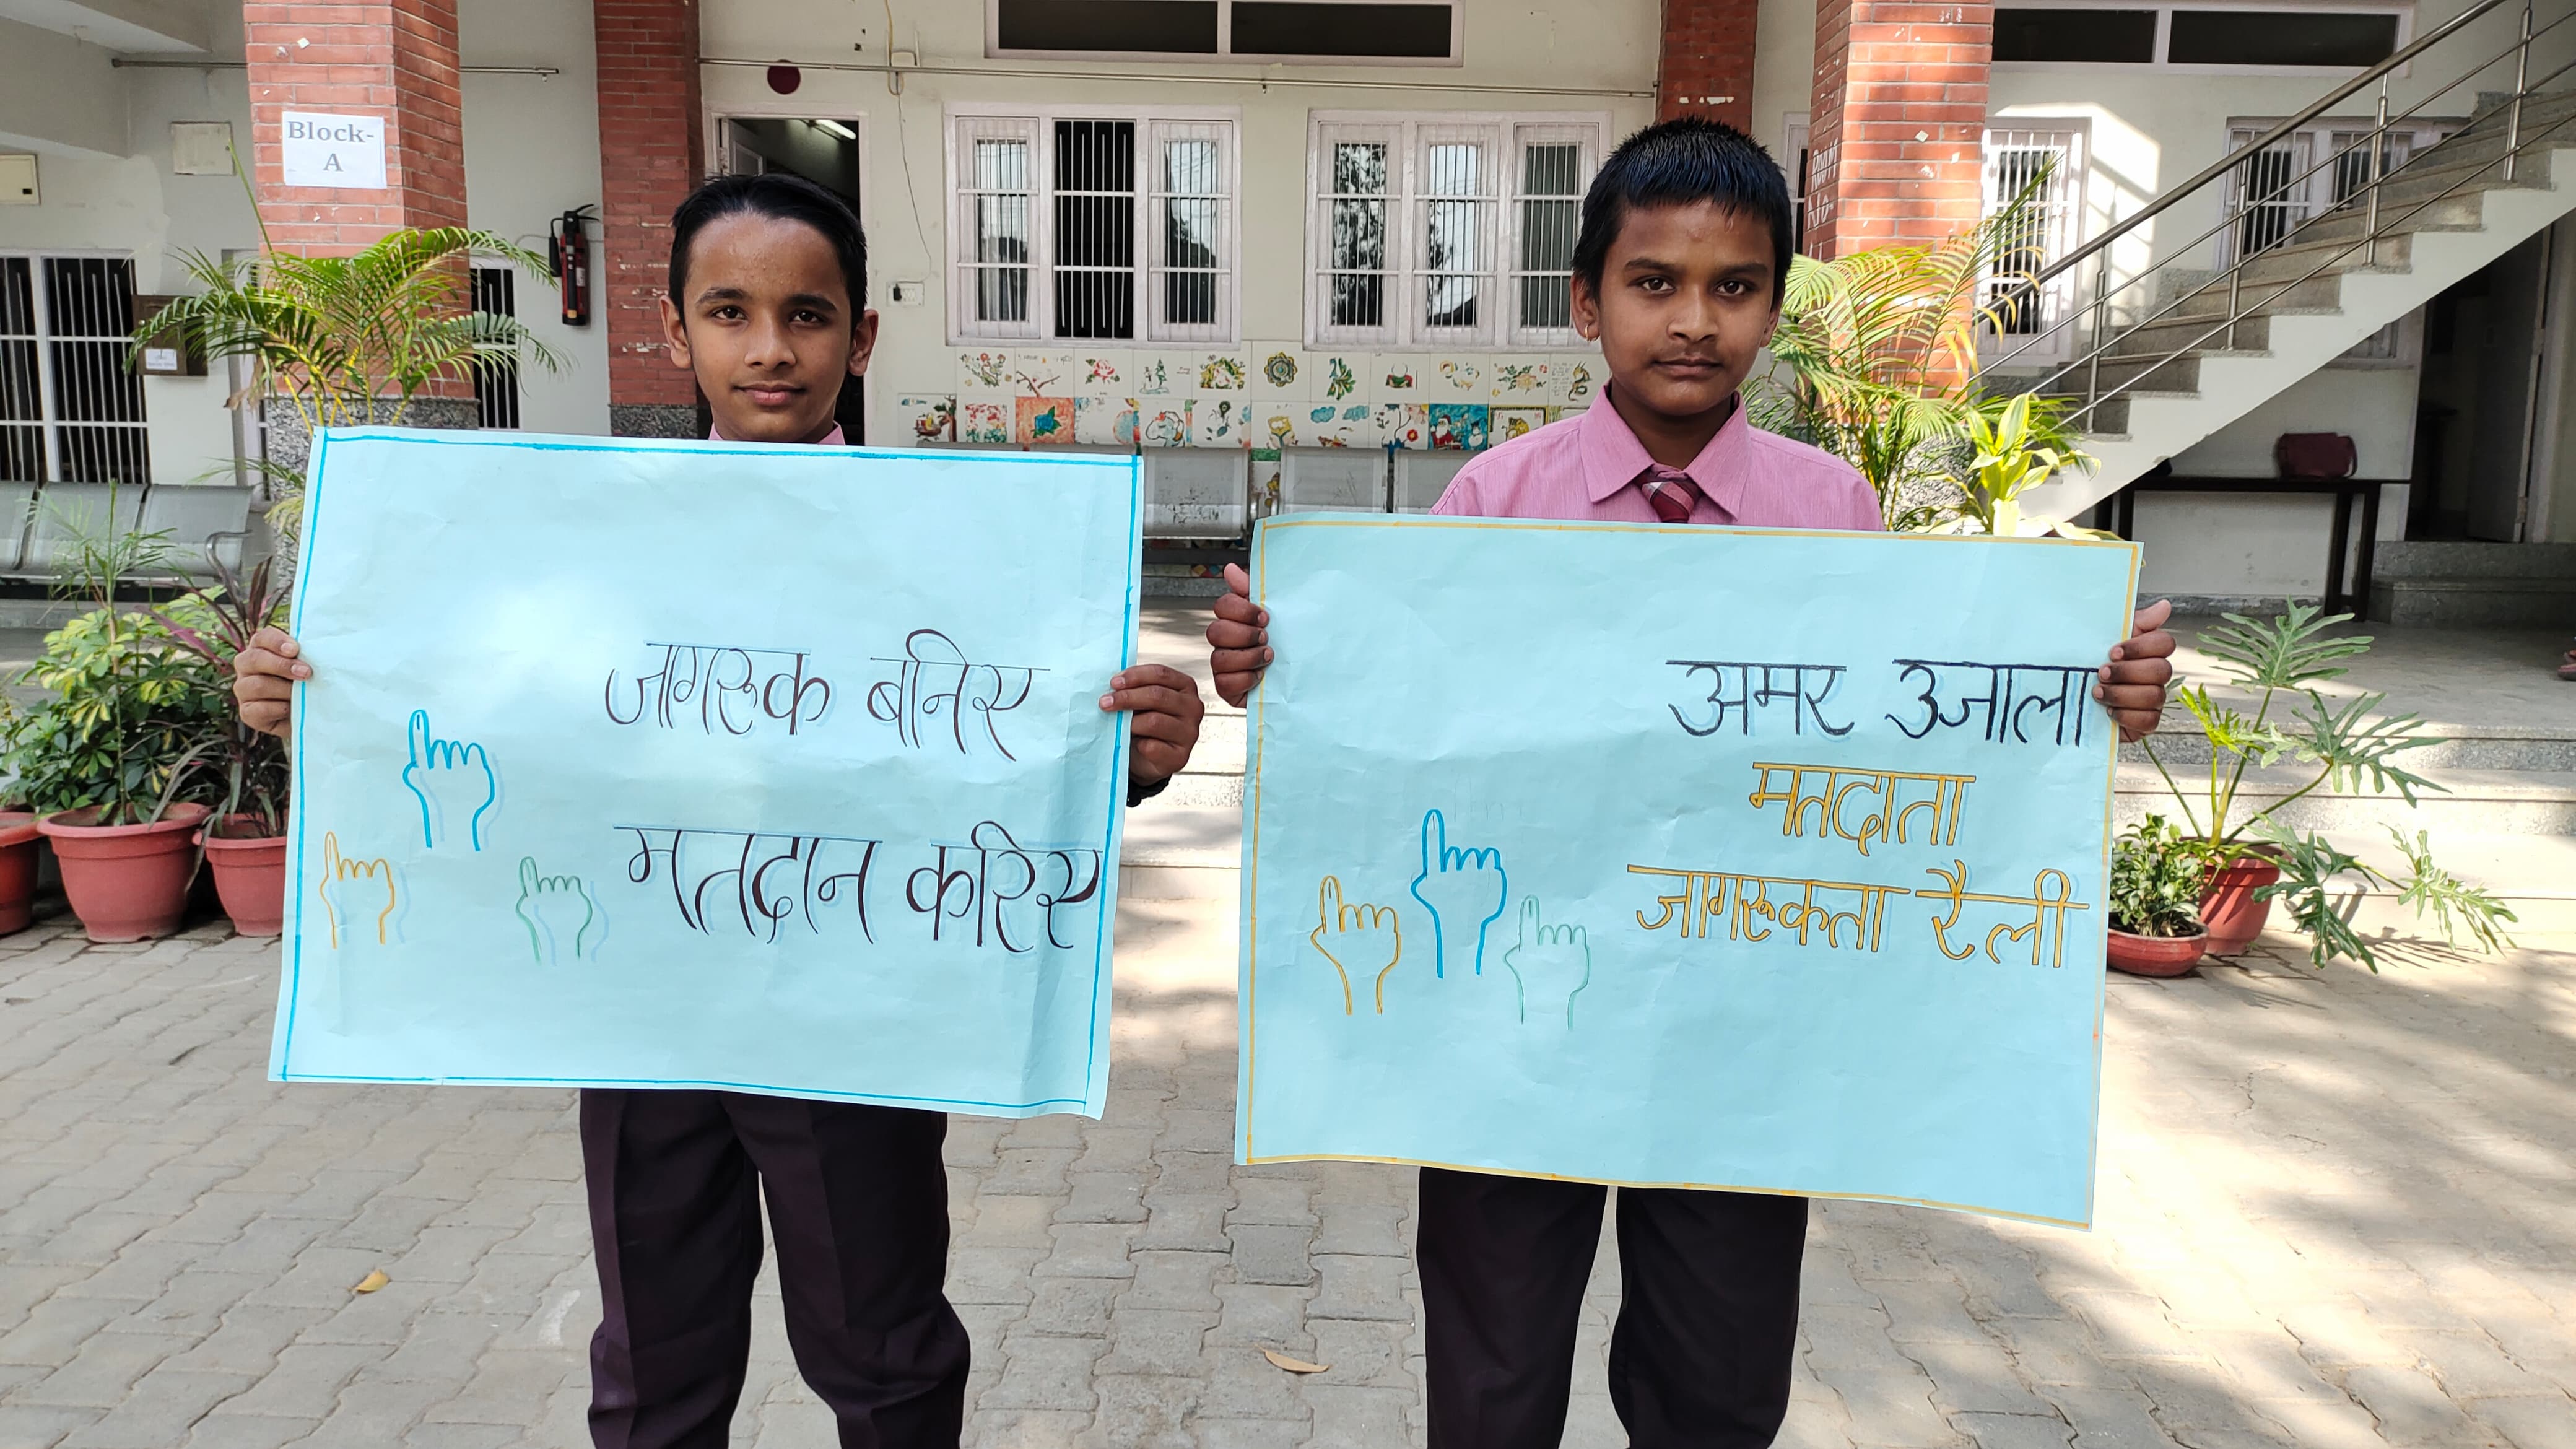 Block-
A
जागरूक बनिए
मतदान करिए
अमर उजाला
मतदाता
जागरूकता रैली
ROOM
No-